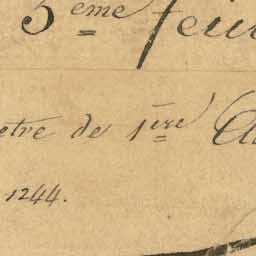 5eme feui
etre de 1ere
1244.